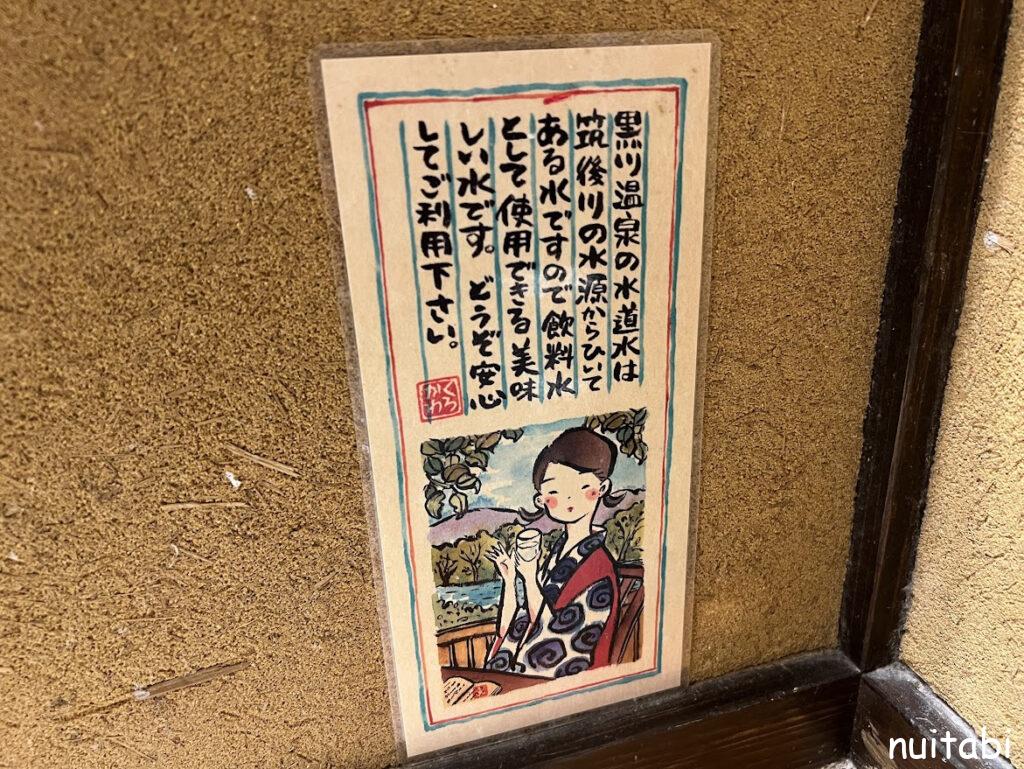 黒川温泉の水道水は
筑後川の水源からひいて
ある水ですので飲料水
として使用できる美味
しい水です。どうぞ安心
してご利用下さい。
くろかわ
nuitabi